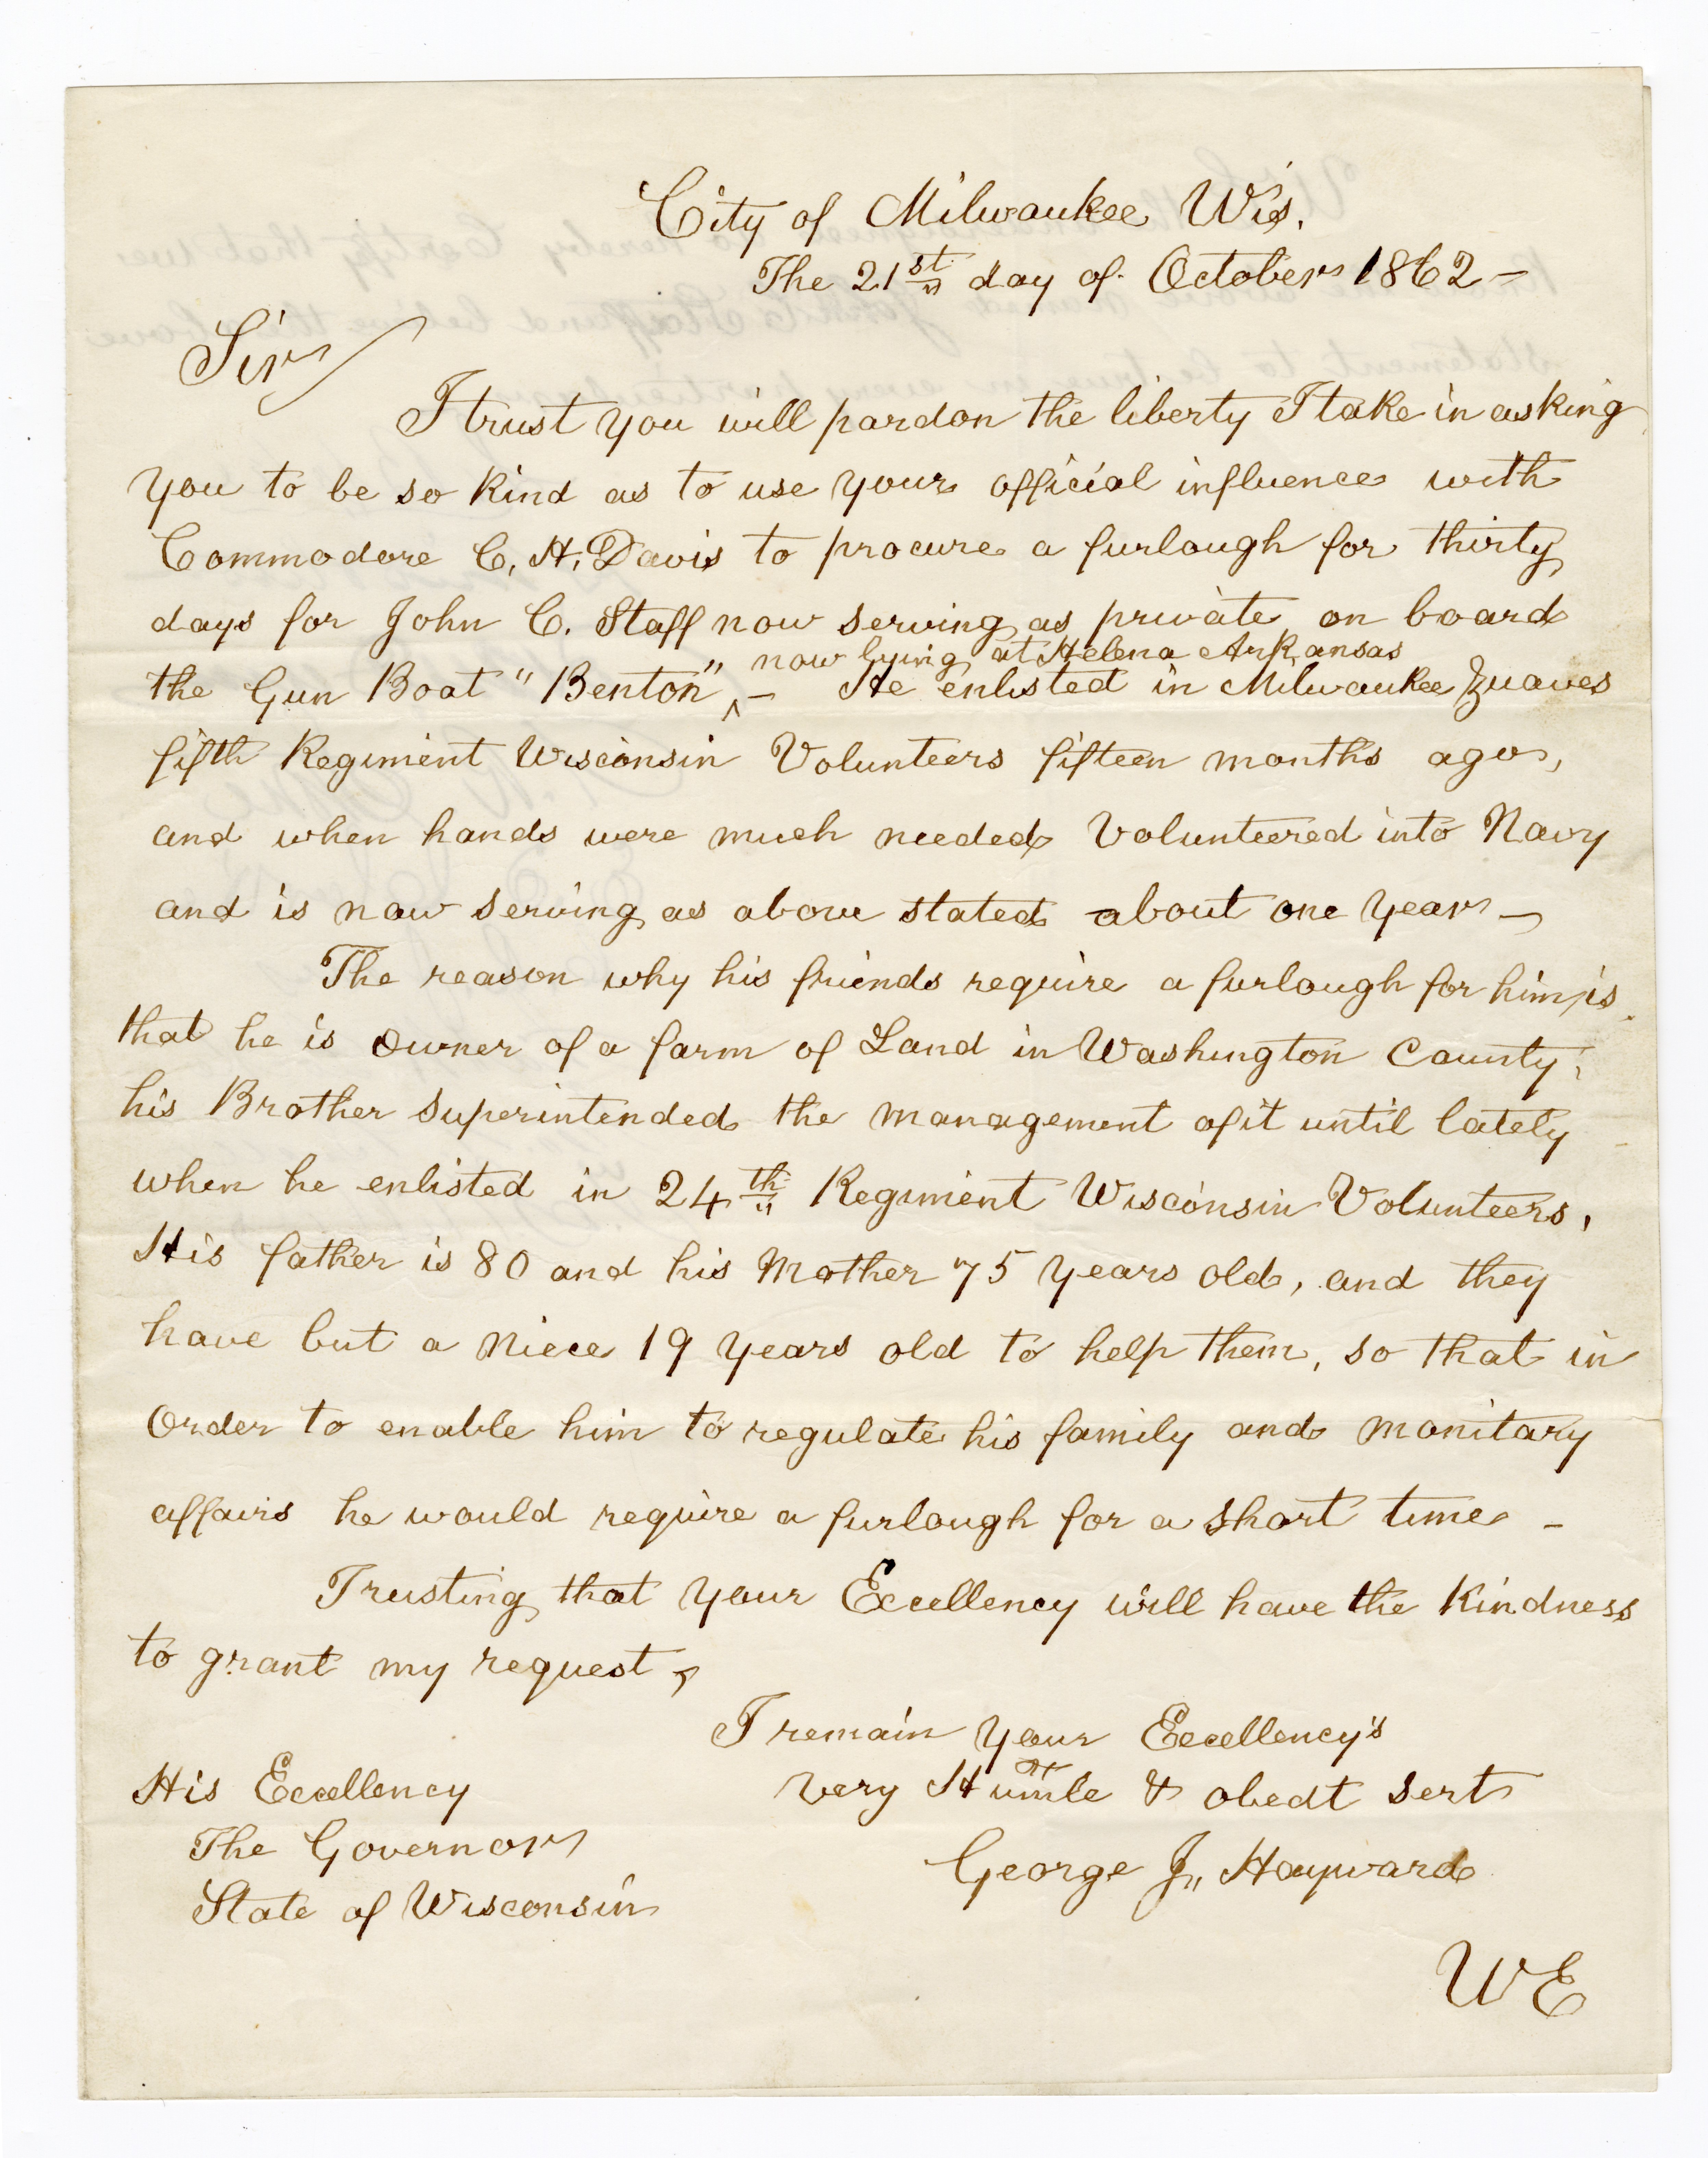 City of Milwaukee Wis.
The 21st day of October 1862 –
Sir
I trust you will pardon the liberty I take in asking
you to be so kind as to use your official influence with
Commodore C. H. Davis to procure a furlough for thirty
days for John C. Staff now serving as private on board
now lying at Helena Arkansas
the Gun Boat "Benton" ^ – He enlisted in Milwaukee Zuaves
fifth Regiment Wisconsin Volunteers fifteen months ago,
and when hands were much needed Volunteered into Navy
and is now serving as above stated about one year –
The reason why his friends require a furlough for him is
that he is owner of a farm of Land in Washington County,
his Brother superintended the management of it until lately
when he enlisted in 24th Regiment Wisconsin Volunteers.
His father is 80 and his Mother 75 years old, and they
have but a niece 19 years old to help them, so that in
order to enable him to regulate his family and monitary
affairs he would require a furlough for a short time –
Trusting that your Excellency will have the kindness
to grant my request,
I remain your Excellency's
His Excellency
very Humle & obedt sert
The Governor
George J. Hayward
State of Wisconsin
WE